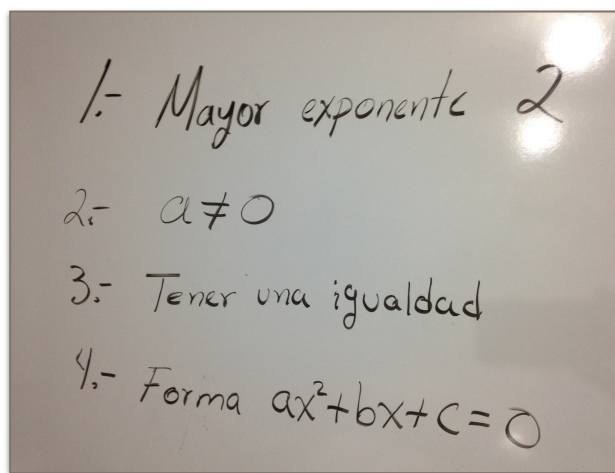 1.- Mayor exponente 2
2.- a ≠ 0
3.- Tener una igualdad
4.- Forma ax²+bx+c=0